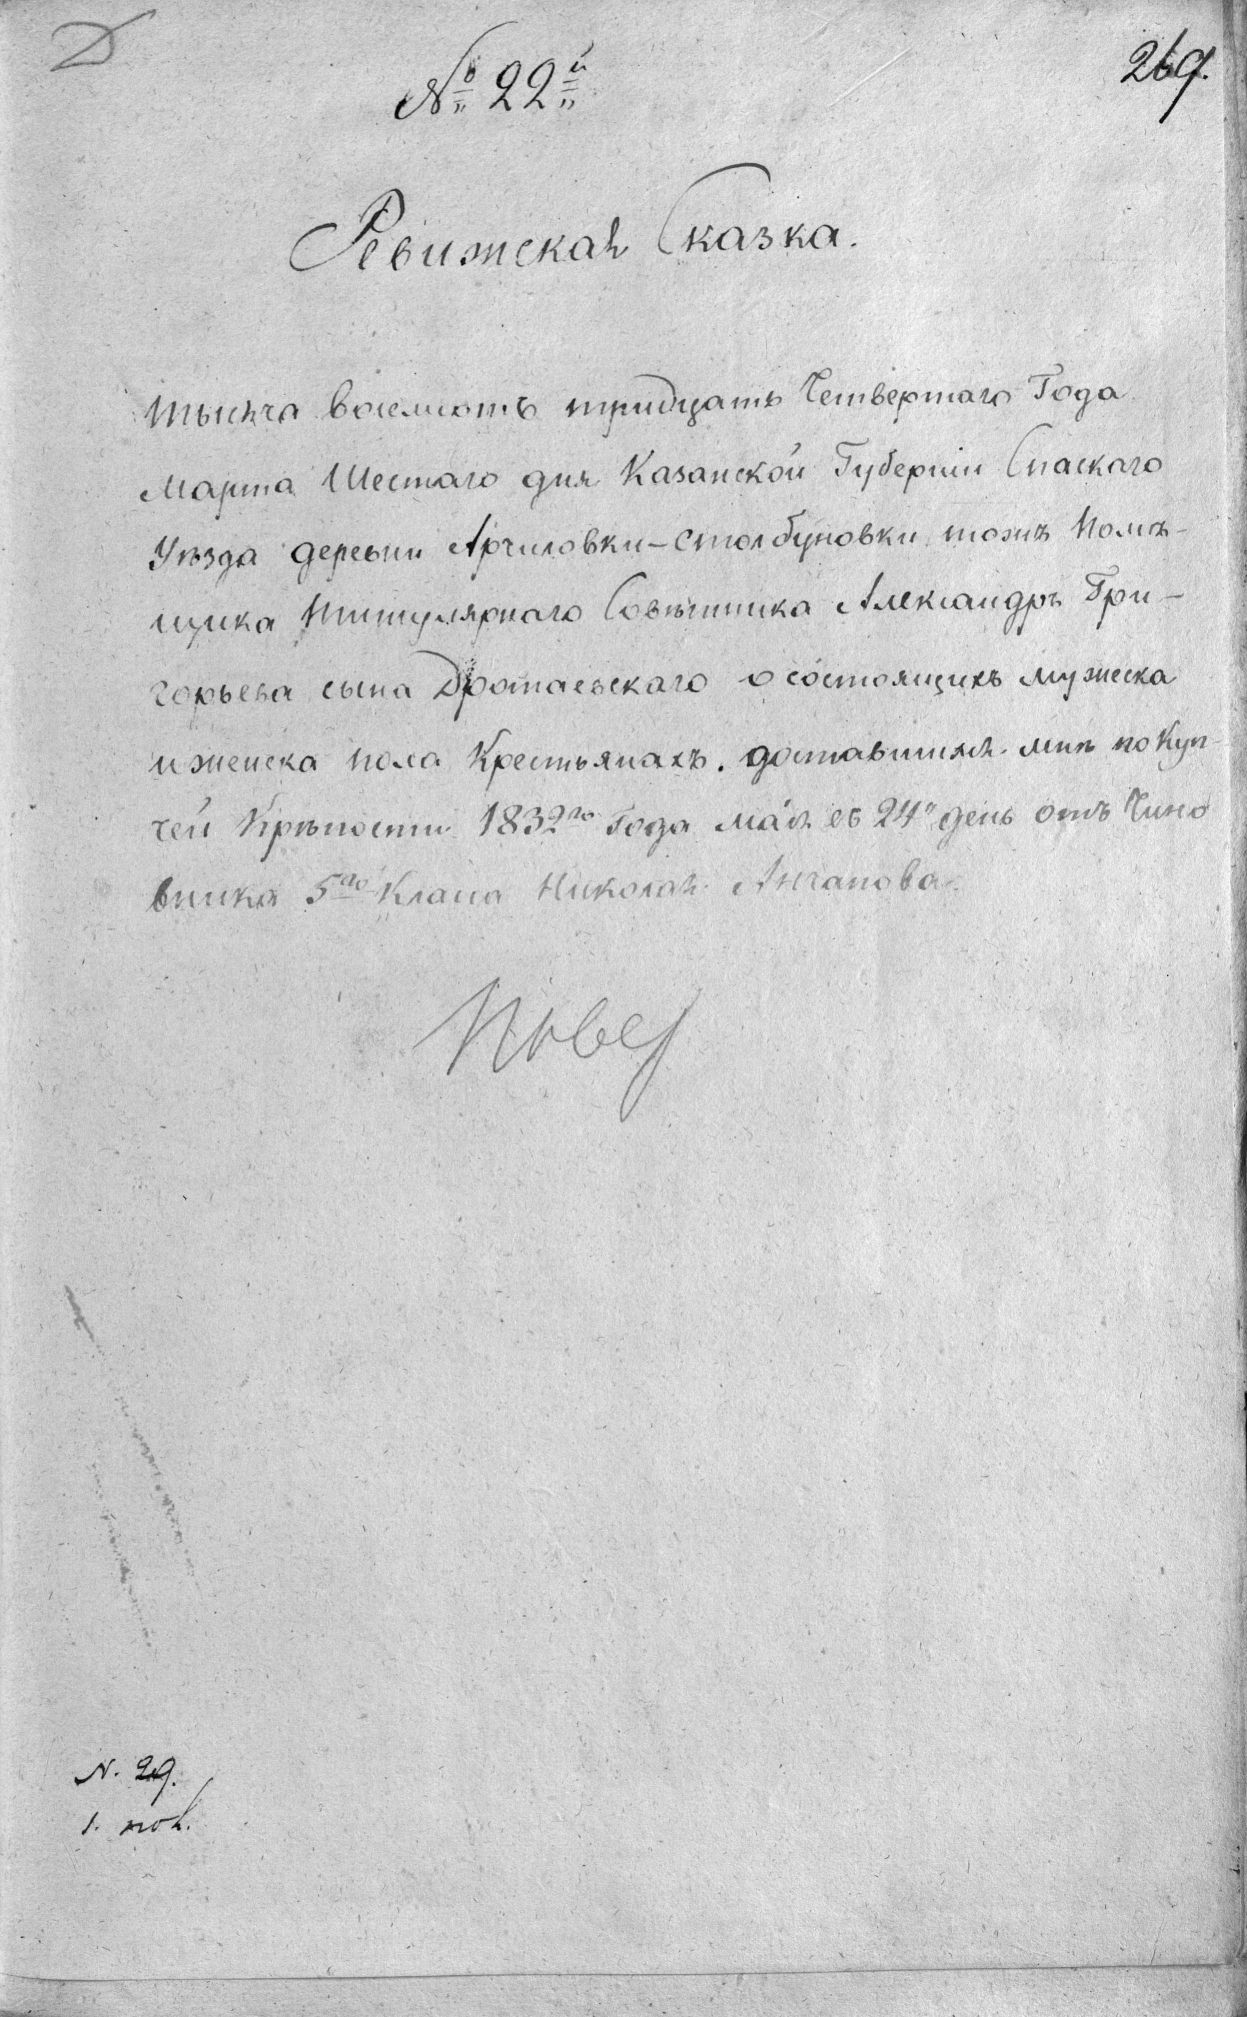 269.
№ 22й
Ревижская Сказка.
тысяча восемсотъ тридцать Четвертаго Года
Марта Шестаго дня Казанской Губерніи Спаскаго
Уѣзда деревни Арчиловки-Столбуновки тожъ Помѣ-
щика Титулярнаго Совѣтника Александръ Гри-
горьева сына Дротаевскаго о состоящихъ мужеска
и женска пола Крестьянахъ. доставшихся мнѣ по Куп-
чей Крѣпости 1832го Года мая въ 24й день отъ Чино
вника 5го Класа Николая
N. 29.